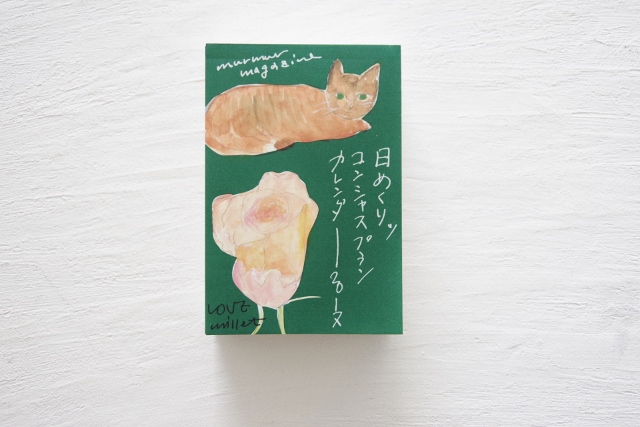 murmur
magazine
日めくりッ
コンシャスプラン
カレンダー
LOVE
millet